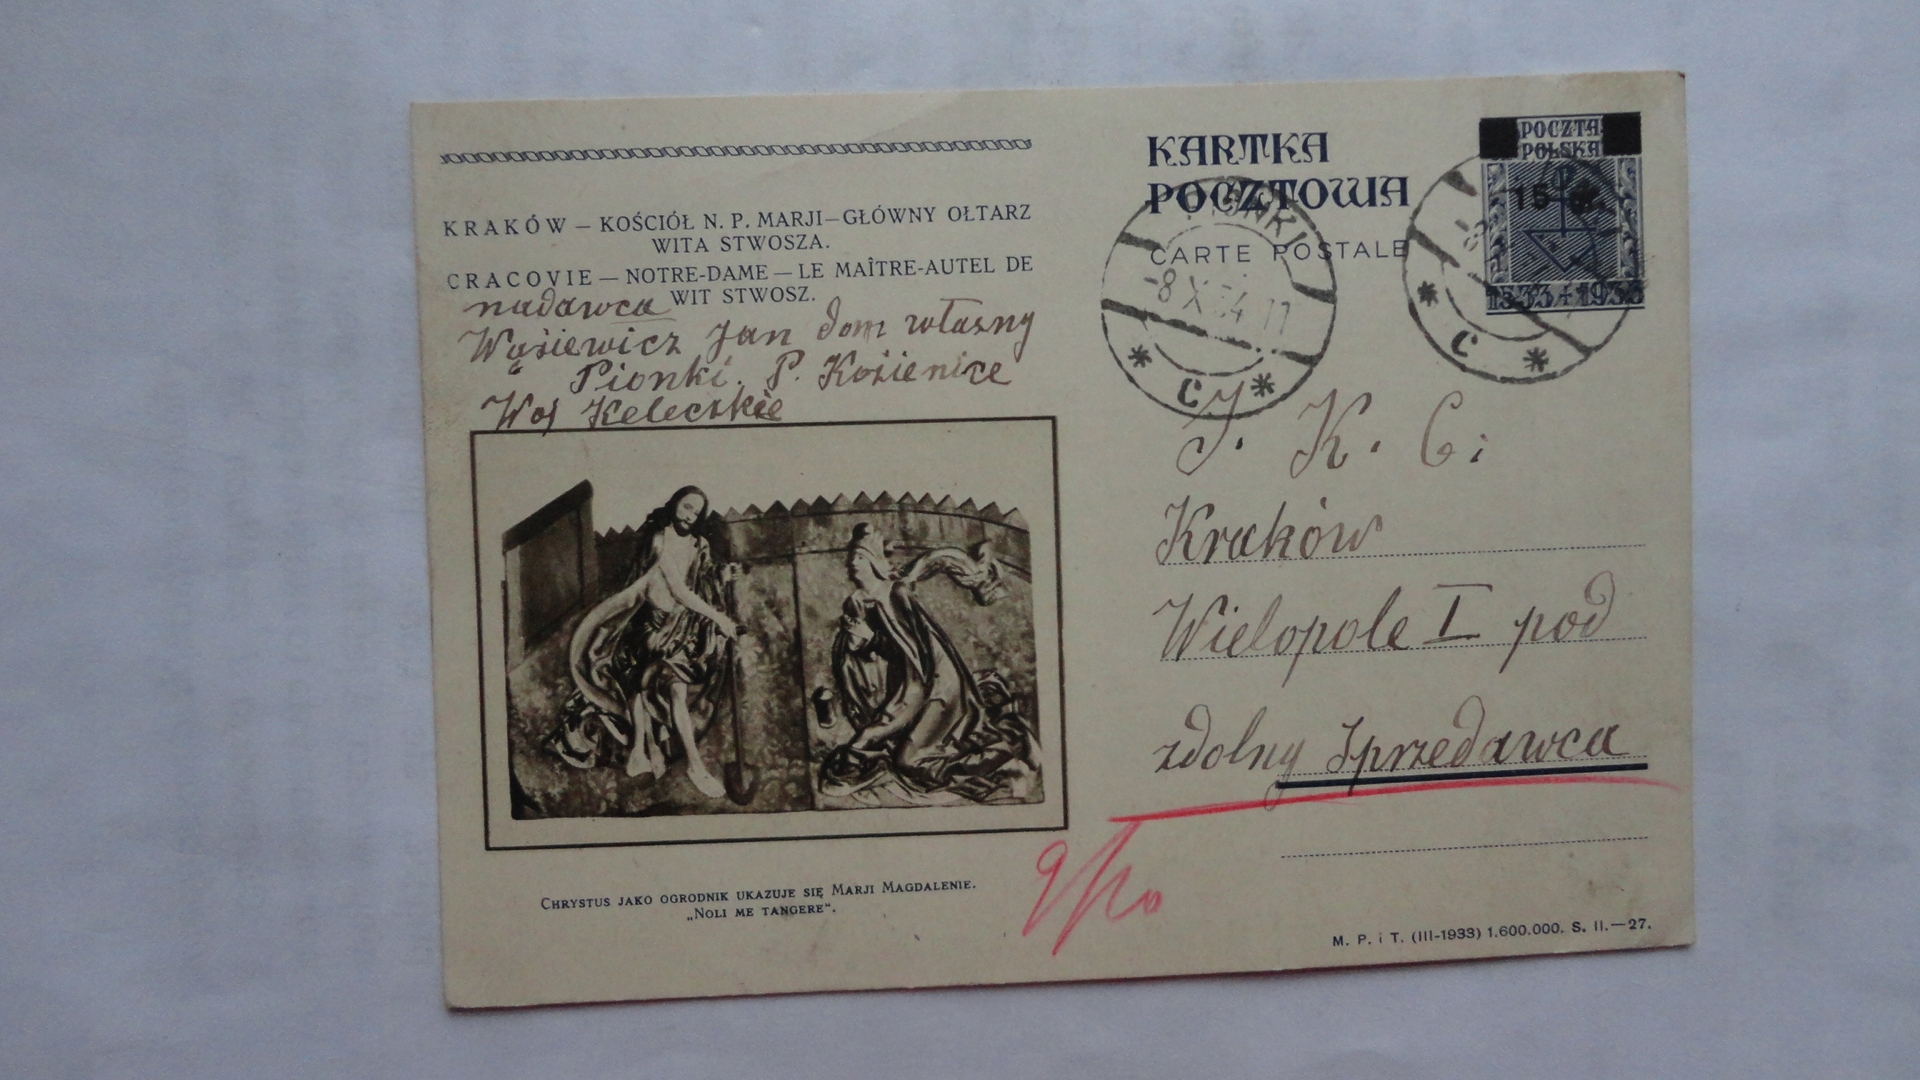 KRAKÓW — KOŚCIÓŁ N. P. MARJI — GŁÓWNY OŁTARZ
WITA STWOSZA.
CRACOVIE — NOTRE-DAME — LE MAÎTRE-AUTEL DE
WIT STWOSZ.
nadawca
Wąsiewicz Jan dom własny
Pionki. P. Kozienice
Woj Keleckie
CHRYSTUS JAKO OGRODNIK UKAZUJE SIĘ MARJI MAGDALENIE.
„NOLI ME TANGERE“.
KARTKA
POCZTOWA
CARTE POSTALE
POCZTA
POLSKA
15
1533+1933
PIONKI
-8 X 34 11
C
-8
C
I. K. C.
Kraków
Wielopole I pod
zdolny Sprzedawca
M. P. i T. (III-1933) 1.600.000. S. II.—27.